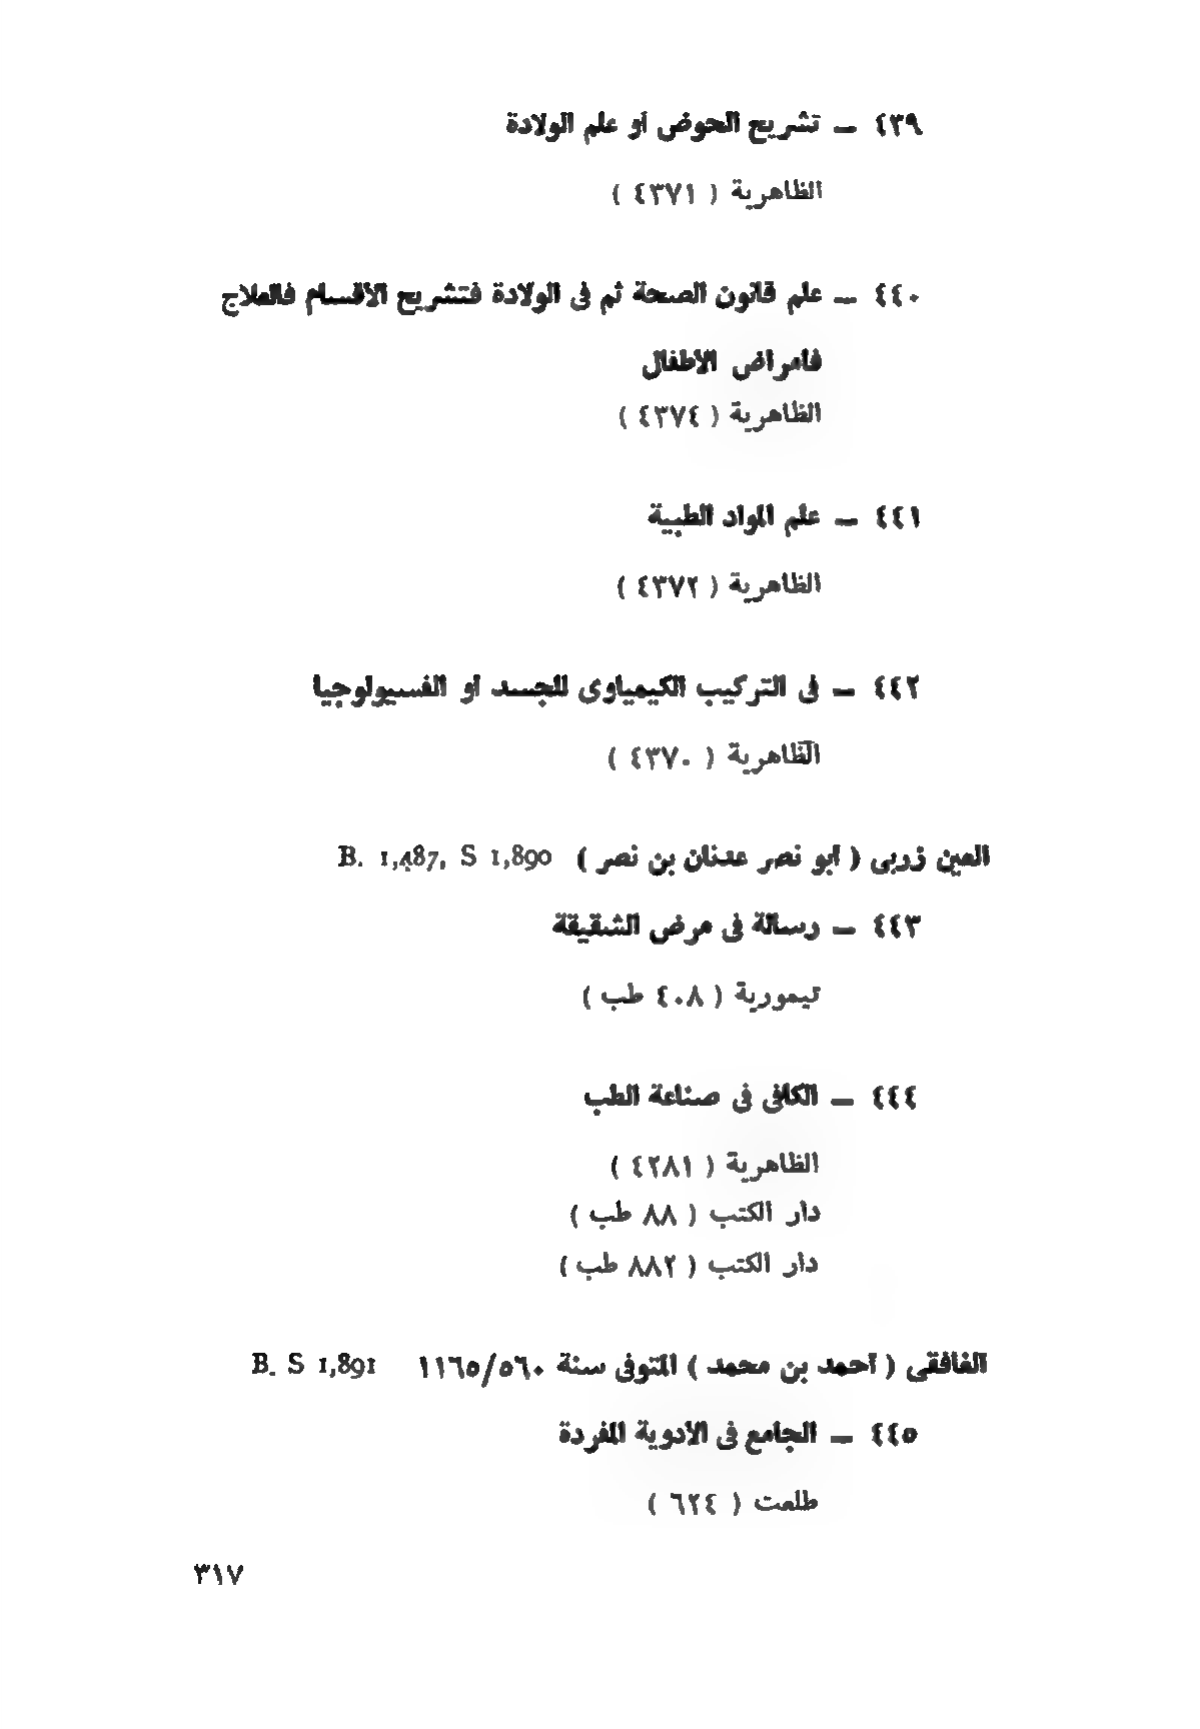 ٤٣٩ — تشريح الحوض أو علم الولادة
الظاهرية ( ٤٣٧١ )
٤٤٠ — علم قانون الصحة ثم فى الولادة فتشريح الأقسام فالعلاج
فأمراض الأطفال
الظاهرية ( ٤٣٧٤ )
٤٤١ — علم المواد الطبية
الظاهرية ( ٤٣٧٢ )
٤٤٢ — فى التركيب الكيمياوى للجسد أو الفسيولوجيا
الظاهرية ( ٤٣٧٠ )
العين زربى ( أبو نصر عدنان بن نصر ) B. 1,487, S 1,890
٤٤٣ — رسالة فى مرض الشقيقة
تيمورية ( ٤٠٨ طب )
٤٤٤ — الكافى فى صناعة الطب
الظاهرية ( ٤٢٨١ )
دار الكتب ( ٨٨ طب )
دار الكتب ( ٨٨٢ طب )
الغافقى ( أحمد بن محمد ) المتوفى سنة ١١٦٥/٥٦٠ B. S 1,891
٤٤٥ — الجامع فى الأدوية المفردة
طلعت ( ٦٢٤ )
٣١٧